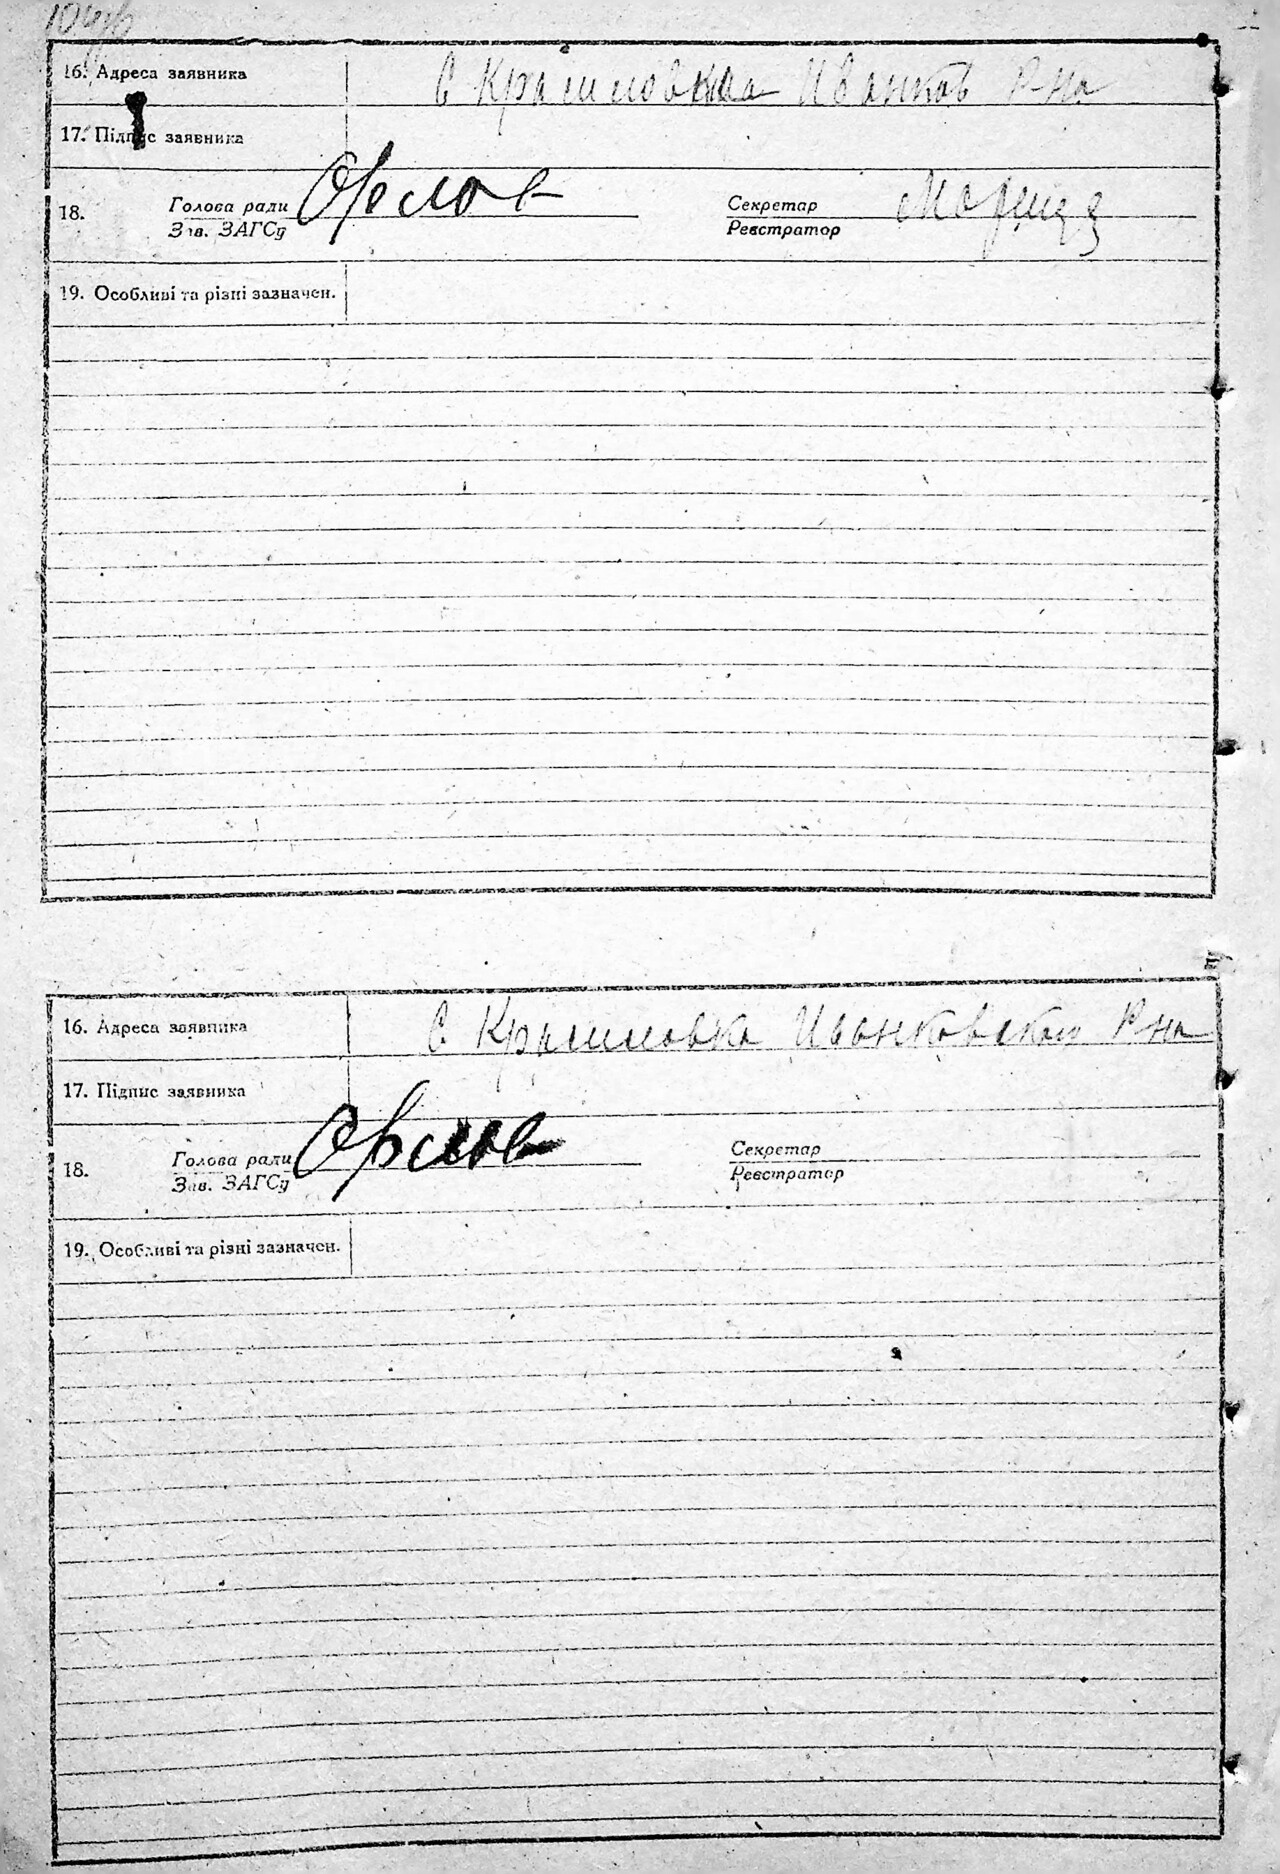 16. Адреса заявника С Крашиловка Иванков Р-на
17. Підпис заявника
18. Голова ради Орлов Секретар
Зав. ЗАГСу Реєстратор
19. Особливі та різні зазначен.
16. Адреса заявника С Крашиловка Иванковского Р-на
17. Підпис заявника
18. Голова ради Орлов Секретар
Зав. ЗАГСу Реєстратор
19. Особливі та різні зазначен.